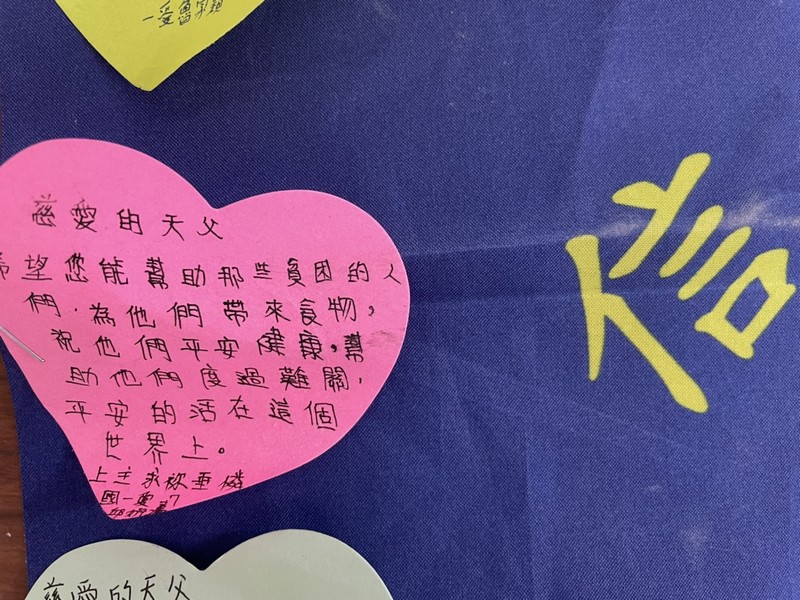 慈愛的天父
希望您能幫助那些貧困的人
們.為他們帶來食物,
祝他們平安健康,幫
助他們度過難關,
平安的活在這個
世界上。
上主求祢垂憐
國一愛7
信
慈愛的天父